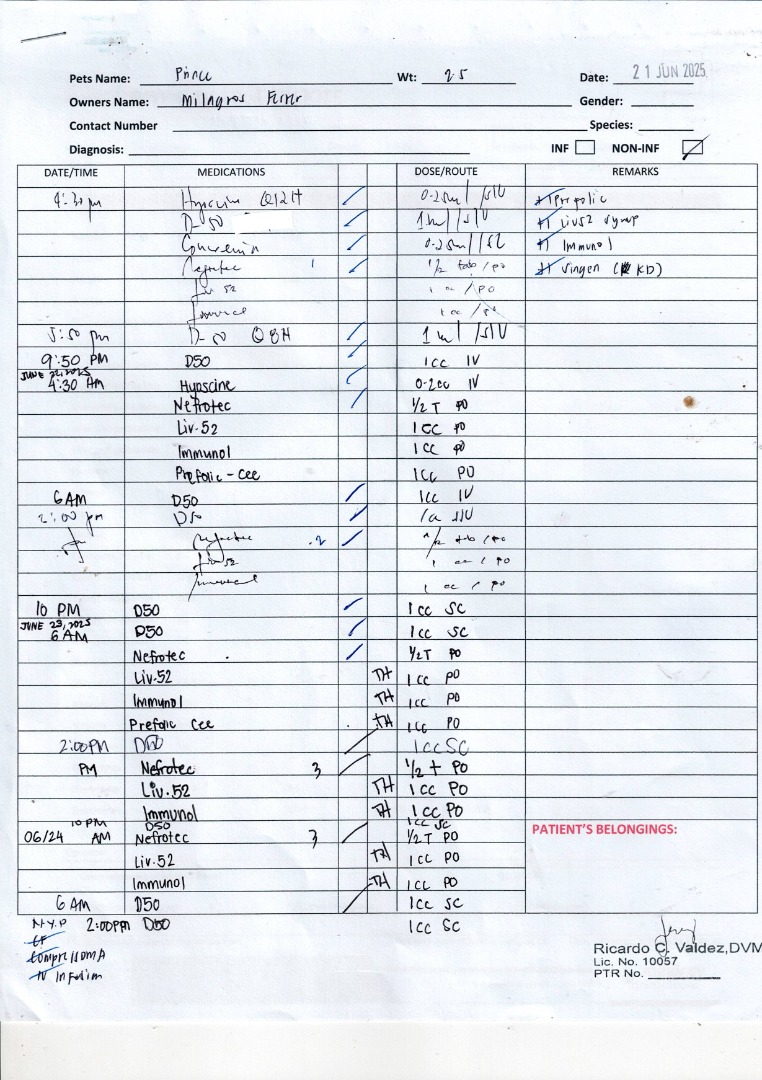 Pets Name: Prince Wt: 25 Date: 21 JUN 2025
Owners Name: Milagros Gender:
Contact Number Species:
Diagnosis: INF NON-INF
DATE/TIME MEDICATIONS DOSE/ROUTE REMARKS
4:30 pm Q12H 0.25ml
D-50 1ml +) Liv52 syrup
0.25ml +) Immunol
1/2 tab / po +) Singen ( KD)
Liv 52 1 cc / PO
1 cc
5:50 pm D-50 Q8H 1ml
9:50 PM D50 1CC IV
JUNE 22, 2025
4:30 AM Hyoscine 0.2cc IV
Nefrotec 1/2 T PO
Liv-52 1CC PO
Immunol 1CC PO
Prefolic-Cee 1CC PO
6AM D50 1CC IV
2:00 pm D50
.2 1/2 tab / po
Liv 52 1 cc / po
1 cc / po
10 PM D50 1CC SC
JUNE 23, 2025
6AM D50 1CC SC
Nefrotec 1/2T PO
Liv-52 TH 1CC PO
Immunol TH 1CC PO
Prefolic Cee TH 1CC PO
2:00PM D50 1CC SC
PM Nefrotec 3 1/2 T PO
Liv.52 TH 1CC PO
Immunol TH 1CC PO
10 PM D50 1CC SC
06/24 AM Nefrotec 3 1/2T PO
PATIENT'S BELONGINGS:
Liv-52 TH 1CC PO
Immunol TH 1CC PO
6 AM D50 1CC SC
N.Y.P 2:00PM D50 1CC SC
CF
Ricardo C. Valdez,DVM
Lic. No. 10057
PTR No.